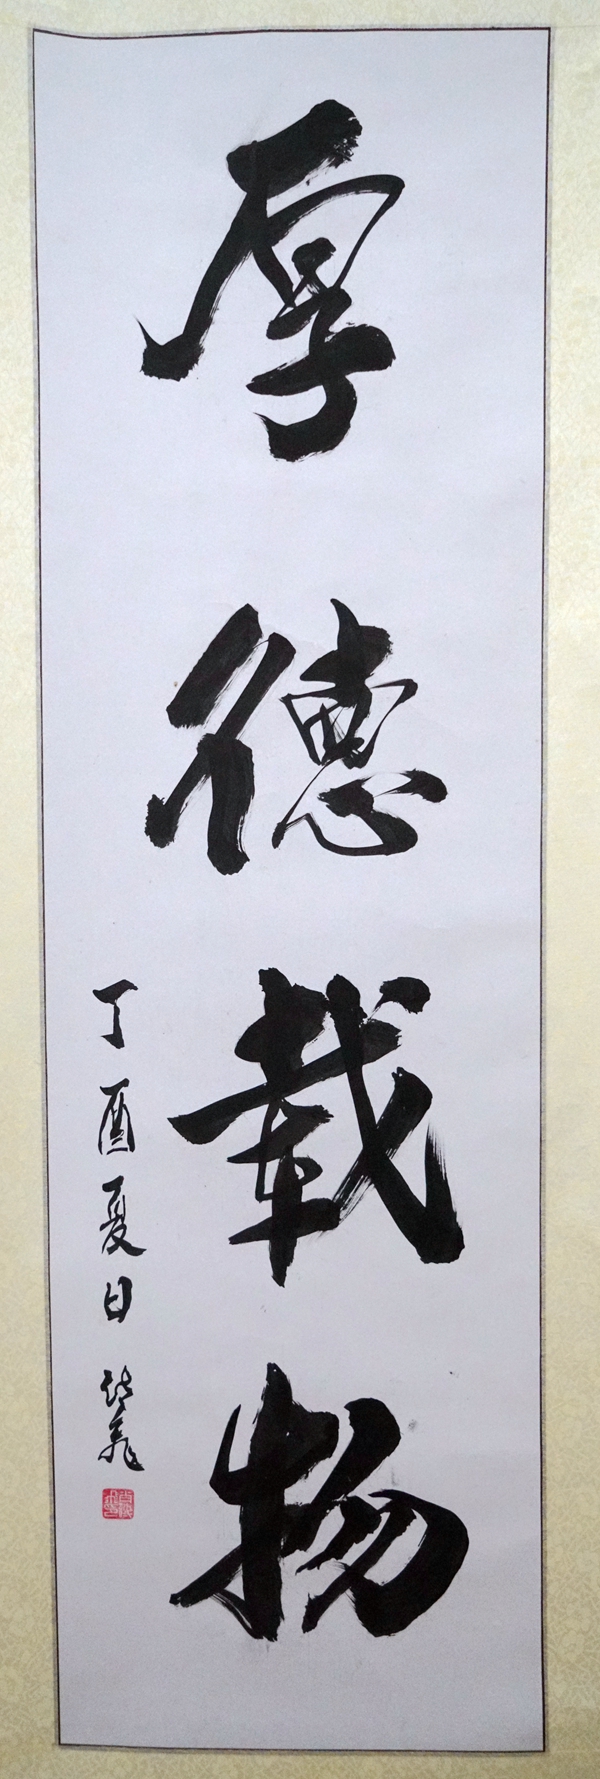 厚德載物
丁酉夏日